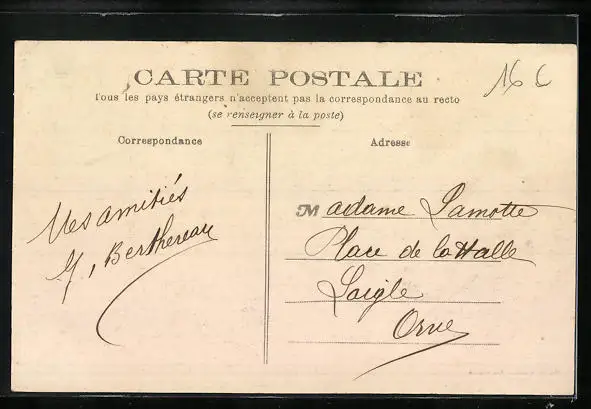 CARTE POSTALE
16 C
Tous les pays étrangers n'acceptent pas la correspondance au recto
(se renseigner à la poste)
Correspondance
Adresse
Mes amitiés
G, Berthereau
Madame Lamotte
Place de la Halle
Laigle
Orne